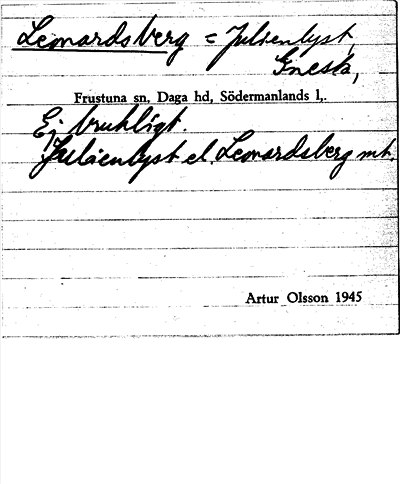 Leonardsberg = Julienlyst,
Gnesta,
Frustuna sn, Daga hd, Södermanlands l,.
Ej brukligt.
Julienlyst el. Leonardsberg mt.
Artur Olsson 1945